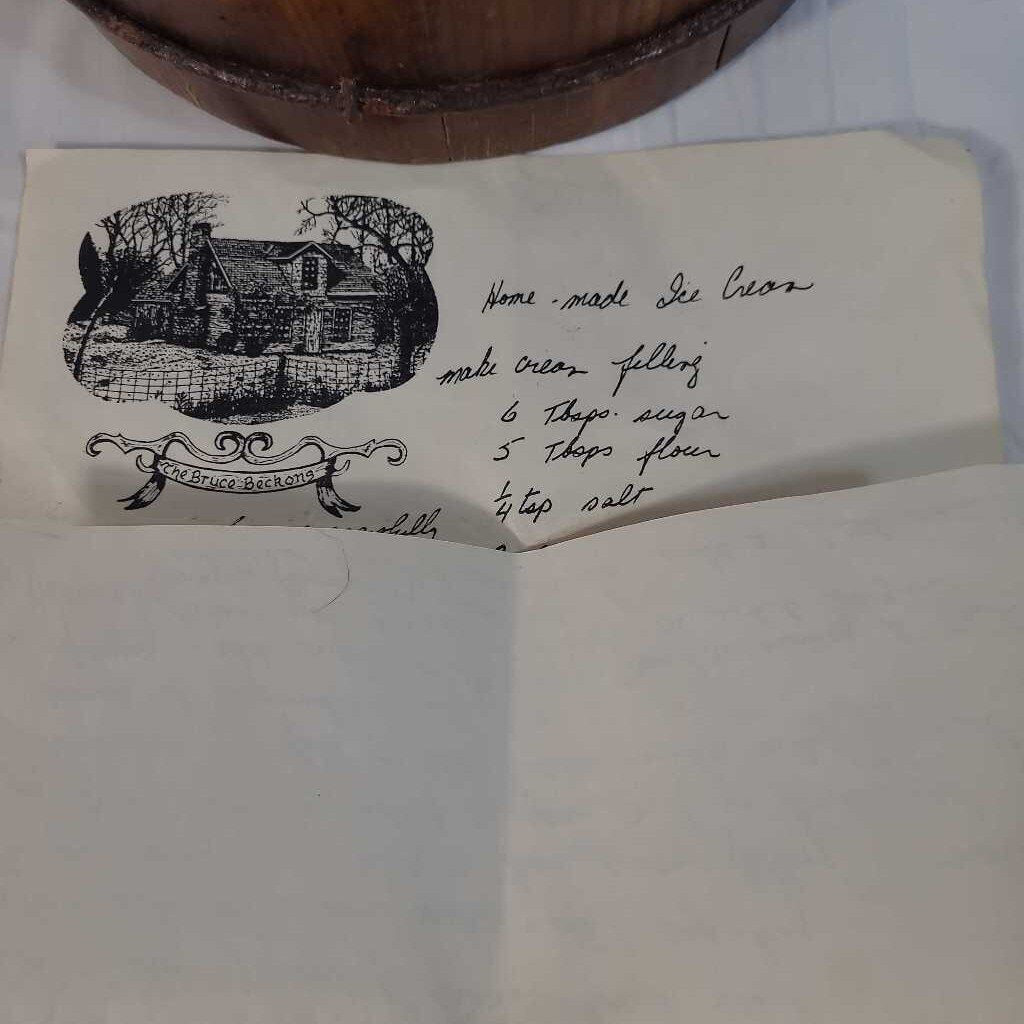 Home-made Ice Cream
make cream filling
6 Tbsps. sugar
5 Tbsps flour
1/4 tsp salt
The Bruce Beckons